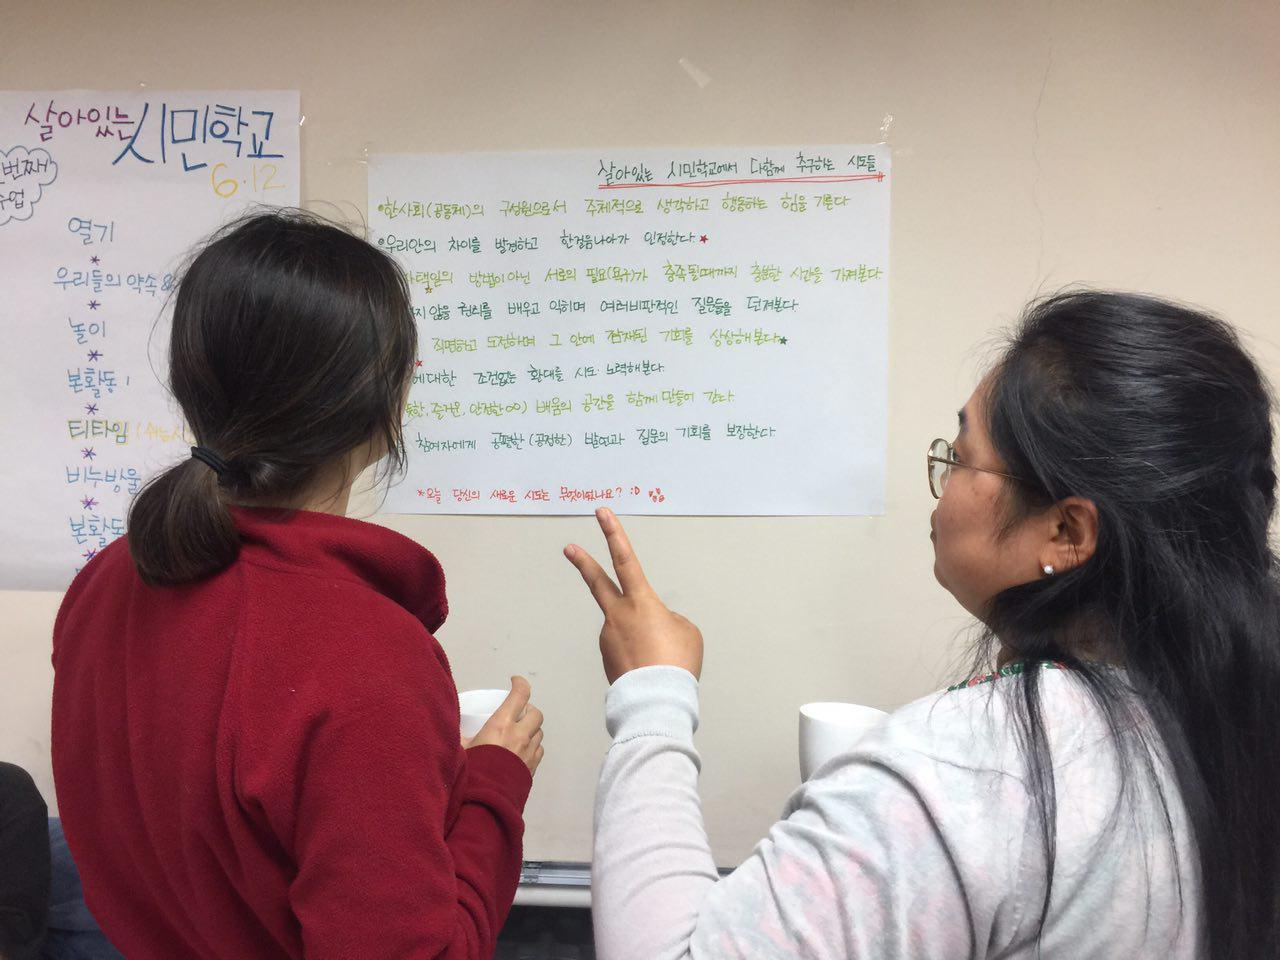 살아있는
시민학교
6.12
번째
수업
열기
우리들의 약속
놀이
본활동 1
티타임
비누방울
본활동
살아있는 시민학교에서 다함께 추구하는 시도들
한사회(공동체)의 구성원으로서 주체적으로 생각하고 행동하는 힘을 기른다
우리안의 차이를 발견하고 한걸음나아가 인정한다.
택일의 방법이 아닌 서로의 필요(욕구)가 충족될때까지 충분한 시간을 가져본다
않을 권리를 배우고 익히며 여러비판적인 질문들을 던져본다.
직면하고 도전하며 그 안에 잠재된 기회를 상상해본다.
에대한 조건없는 환대를 시도·노력해본다.
즐거운, 안전한 ∞) 배움의 공간을 함께 만들어 간다.
참여자에게 공평한(공정한) 발언과 질문의 기회를 보장한다.
*오늘 당신의 새로운 시도는 무엇이었나요? :D